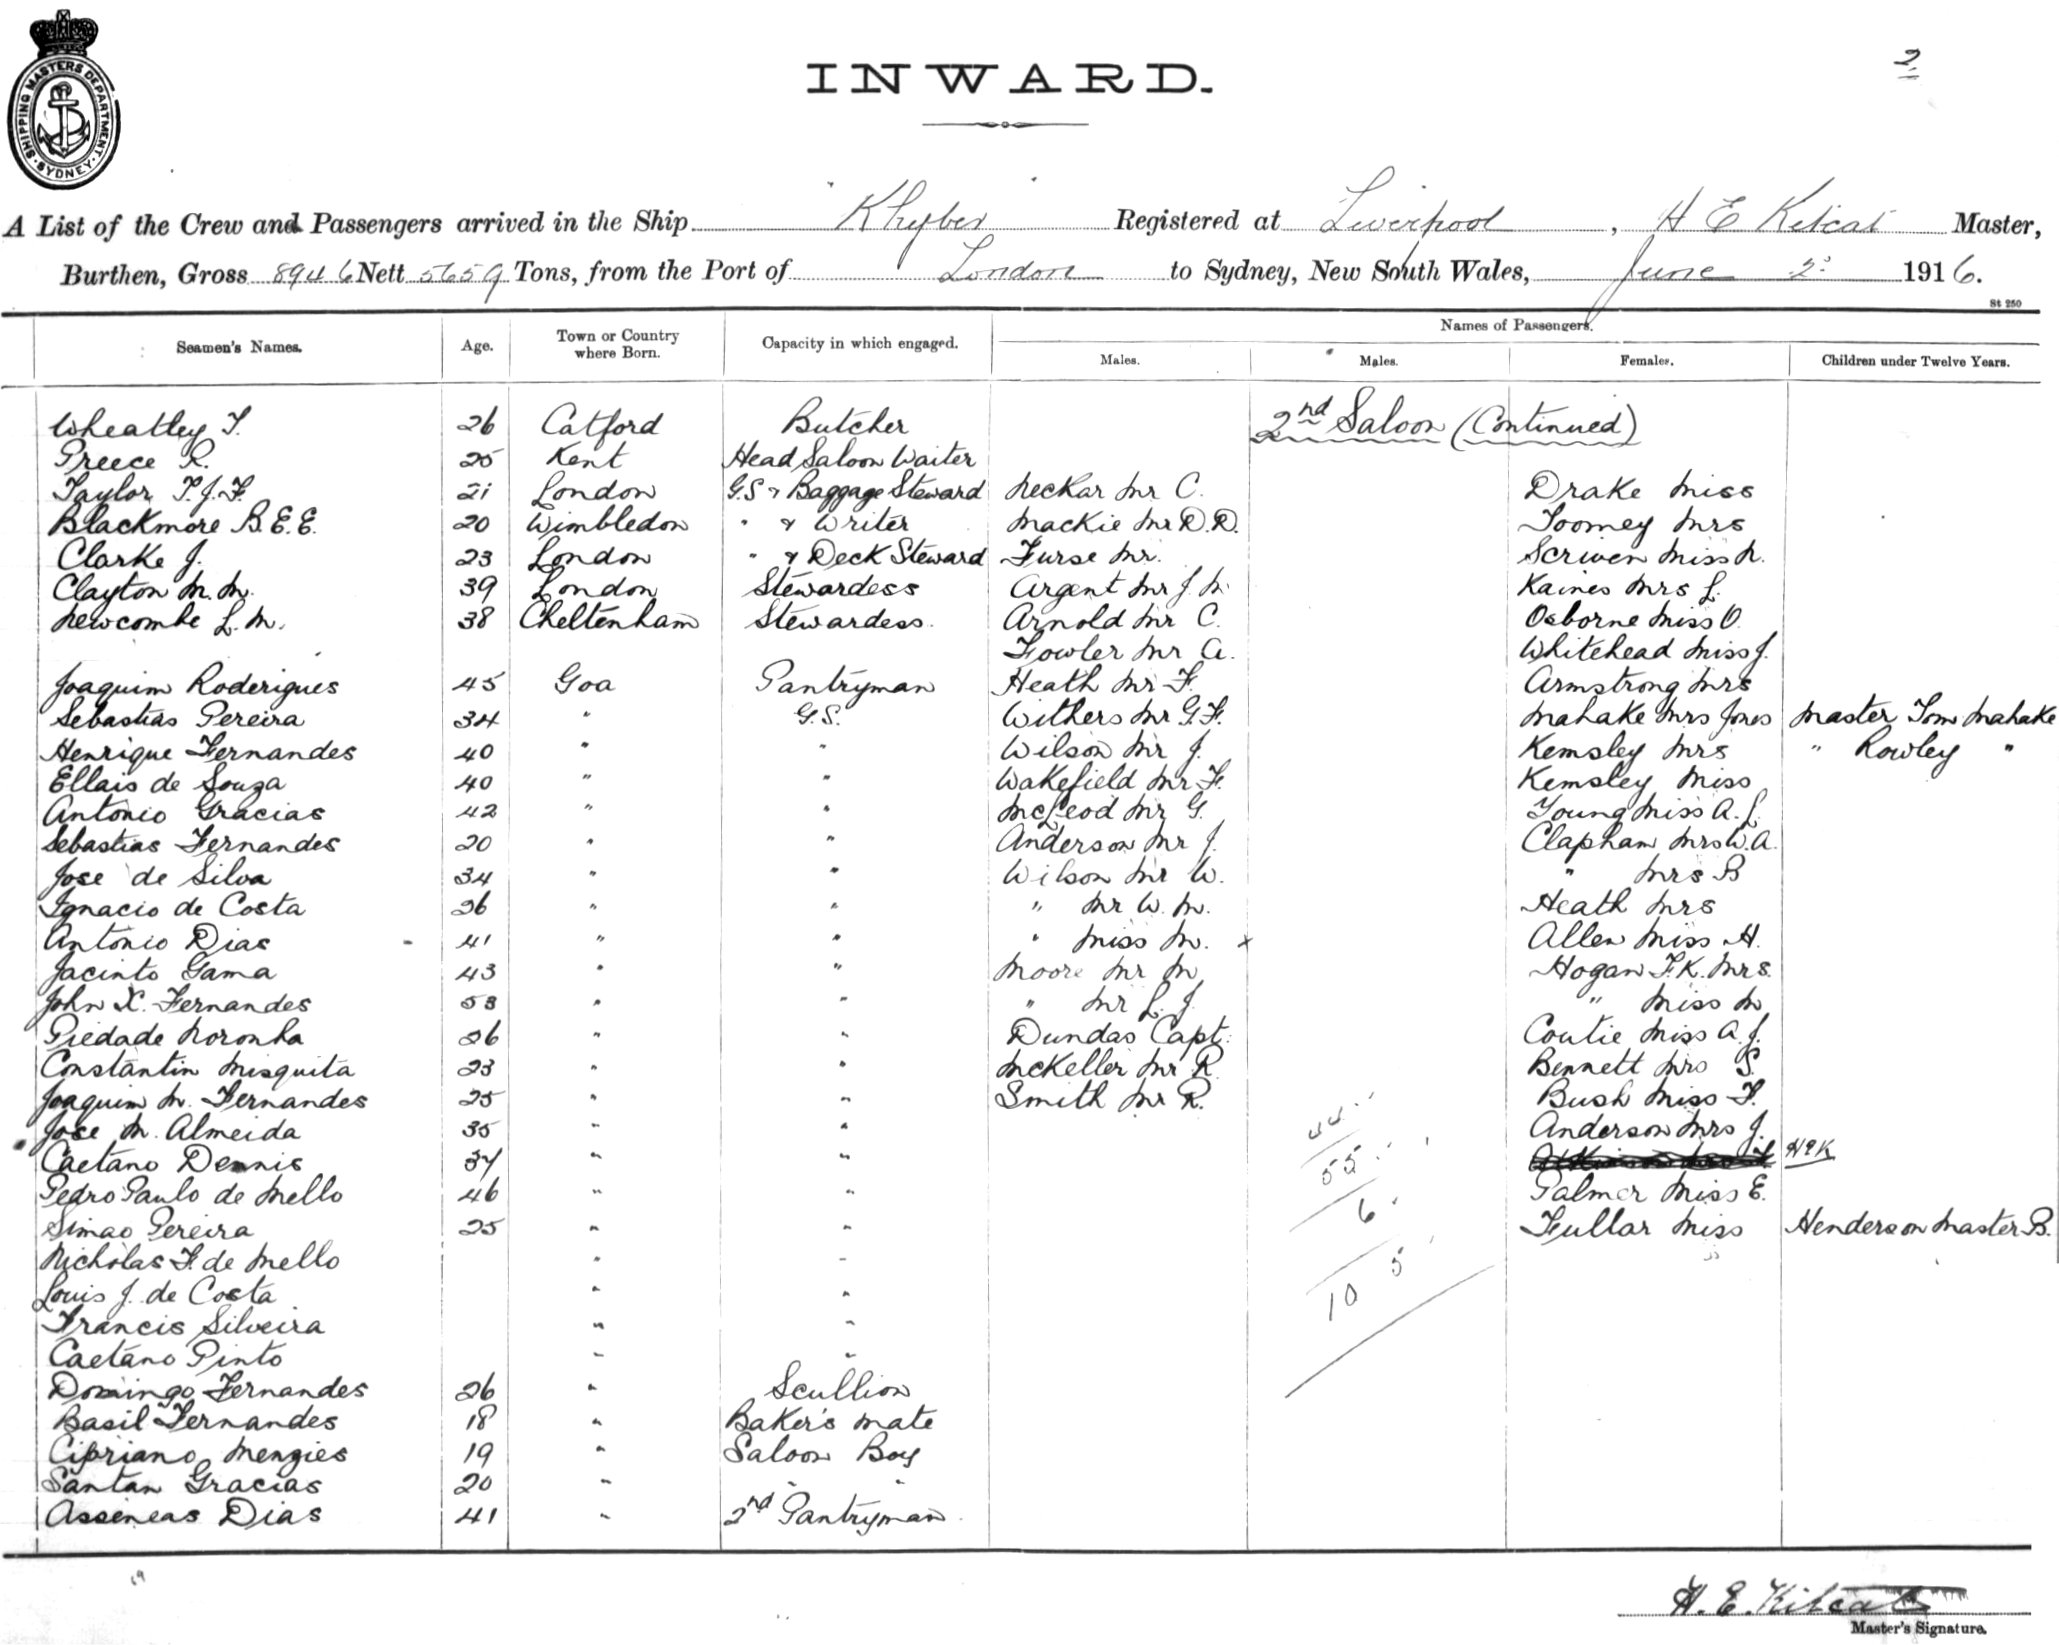 INWARD.
2
SHIPPING MASTERS DEPARTMENT. SYDNEY
A List of the Crew and Passengers arrived in the Ship "Khyber" Registered at Liverpool, H E Kitcat Master,
Burthen, Gross 8946 Nett 5659 Tons, from the Port of London to Sydney, New South Wales, June 2 1916.
St 250
Seamen's Names. Age. Town or Country where Born. Capacity in which engaged. Names of Passengers.
Males. Males. Females. Children under Twelve Years.
Wheatley T. 26 Catford Butcher 2nd Saloon (Continued)
Preece R. 25 Kent Head Saloon Waiter
Taylor P.J.F. 21 London G.S & Baggage Steward Neckar Mr C. Drake Miss
Blackmore B.E.E. 20 Wimbledon " & Writer Mackie Mr D.D. Toomey Mrs
Clarke J. 23 London " & Deck Steward Furse Mr. Scriven Miss N.
Clayton M.M. 39 London Stewardess Argent Mr J.M. Kaines Mrs L.
Newcombe L.M. 38 Cheltenham Stewardess. Arnold Mr C. Osborne Miss O.
Fowler Mr A. Whitehead Miss J.
Joaquim Roderigues 45 Goa Pantryman Heath Mr F. Armstrong Mrs
Sebastias Pereira 34 " G.S. Withers Mr G.F. Mahake Mrs Jones Master Tom Mahake
Henrique Fernandes 40 " " Wilson Mr J. Kemsley Mrs " Rowley "
Ellais de Souza 40 " " Wakefield Mr F. Kemsley Miss
Antonio Gracias 42 " " McLeod Mr G. Young Miss A.L.
Sebastias Fernandes 20 " " Anderson Mr J. Clapham Mrs W.A.
Jose de Silva 34 " " Wilson Mr W. " Mrs B
Ignacio de Costa 26 " " " Mr W.M. Heath Mrs
Antonio Dias 41 " " " Miss M. x Allen Miss H.
Jacinto Gama 43 " " Moore Mr M. Hogan F.K. Mrs.
John X. Fernandes 53 " " " Mr L.J. " Miss M
Piedade Noronha 26 " " Dundas Capt. Coutie Miss A.J.
Constantin Misquita 23 " " McKeller Mr R. Bennett Mrs S.
Joaquim M. Fernandes 25 " " Smith Mr R. Bush Miss F.
Jose M. Almeida 35 " " 44 Anderson Mrs J.
Caetano Dennis 37 " " 55 HEK
Pedro Paulo de Mello 46 " " 6 Palmer Miss E.
Simao Pereira 25 " " Fullar Miss Henderson Master B.
Nicholas F. de Mello " " 105
Louis J. de Costa " "
Francis Silveira " "
Caetano Pinto " "
Domingo Fernandes 26 " Scullion
Basil Fernandes 18 " Baker's Mate
Cipriano Menzies 19 " Saloon Boy
Santan Gracias 20 " " "
Asseneas Dias 41 " 2nd Pantryman
H. E. Kitcat
Master's Signature.